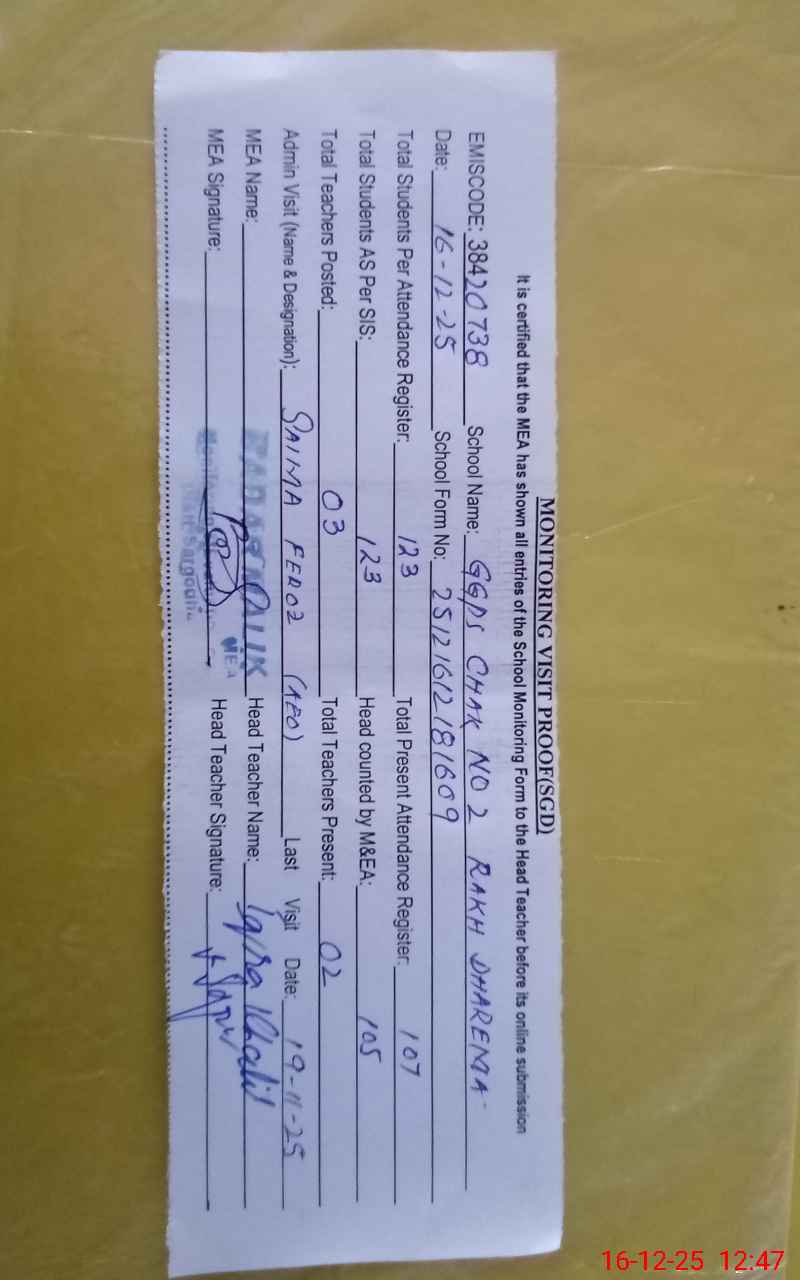 MONITORING VISIT PROOF(SGD)
It is certified that the MEA has shown all entries of the School Monitoring Form to the Head Teacher before its online submission
EMISCODE: 38420738 School Name: GGPS CHAK NO 2 RAKH DHAREMA
Date: 16-12-25 School Form No: 25121612181609
Total Students Per Attendance Register: 123 Total Present Attendance Register: 107
Total Students AS Per SIS: 123 Head counted by M&EA: 105
Total Teachers Posted: 03 Total Teachers Present: 02
Admin Visit (Name & Designation): SAIMA FEROZ (AEO) Last Visit Date: 19-11-25
MEA Name: MALIK Head Teacher Name: Iqra Khalil
MEA Signature: MEA Head Teacher Signature:
Sargodha
16-12-25 12:47